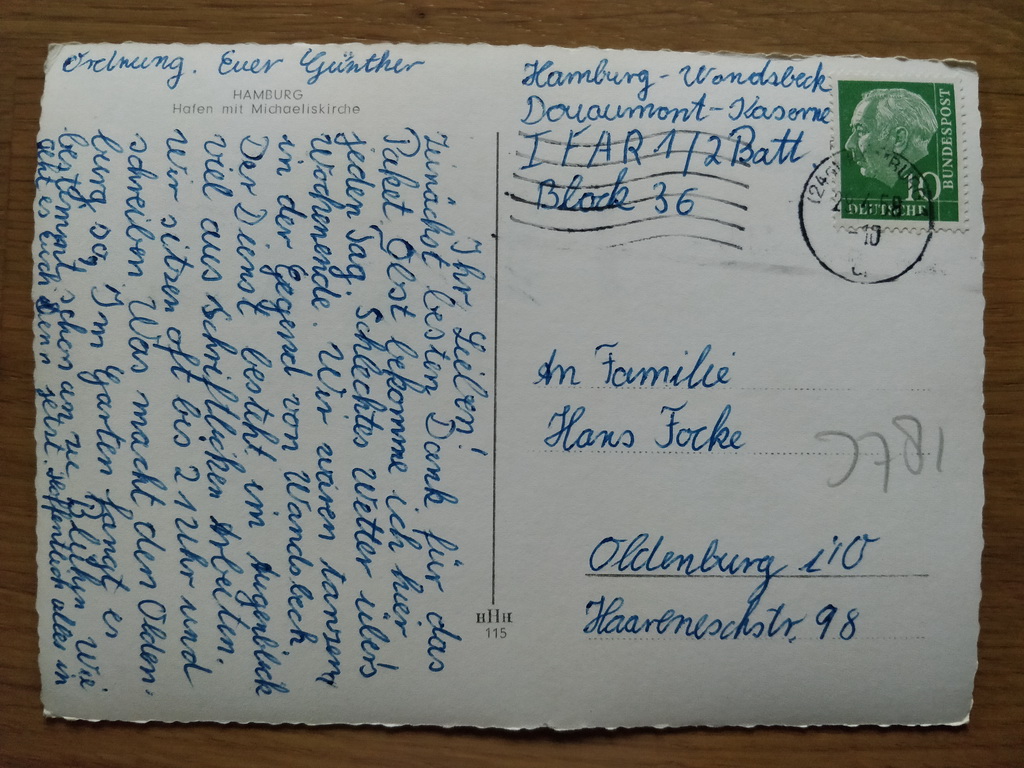 HAMBURG
Hafen mit Michaeliskirche
Ihr Lieben!
Zunächst besten Dank für das
Paket. Obst bekomme ich hier
jeden Tag. Schlechtes Wetter übers
Wochenende. Wir wären tanzen
in der Gegend von Wandsbeck
Der Dienst besteht im Augenblick
viel aus schriftlichen Arbeiten.
Wir sitzen oft bis 21 Uhr und
schreiben Was macht den Olden-
burg so, Im Garten fängt es
bestimmt schon an zu Blühn Wie
geht es Euch denn jetzt. Hoffentlich alles in
Ordnung. Euer Günther
HHH
115
Hamburg-Wandsbeck
Douaumont-Kaserne
I FAR 1/2 Batt
Block 36
BUNDESPOST
10
An Familie
Hans Focke
Oldenburg i/O
Haareneschstr. 98